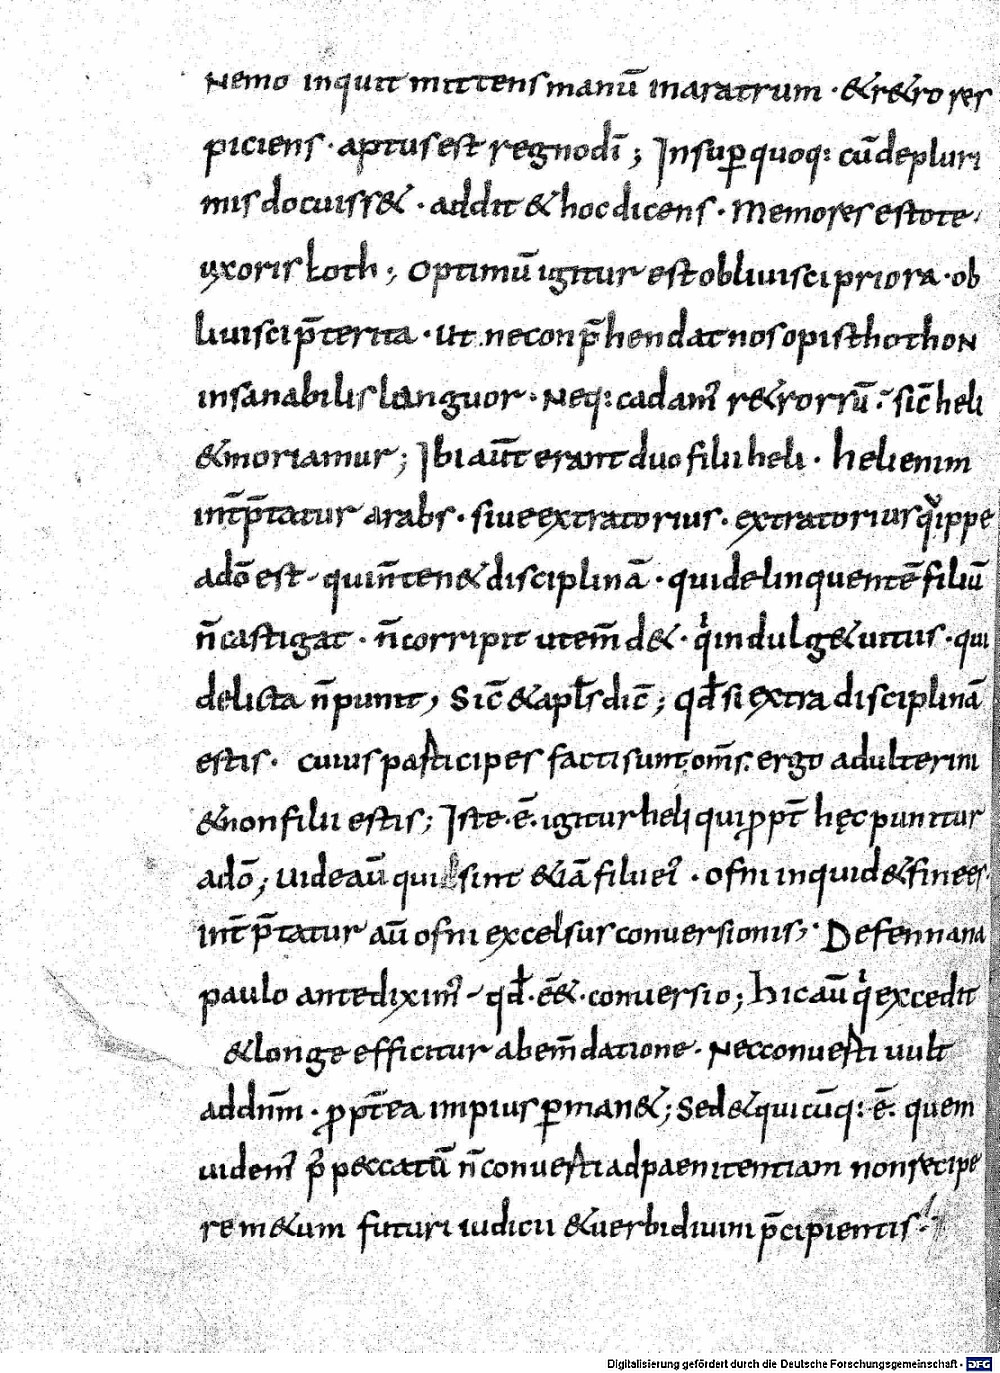 Nemo inquit mittens manū in aratrum · & r&ro res
piciens · aptus est regno dī ; Insuꝑ quoq: cū de pluri
mis docuiss& · addit & hoc dicens · Memores estote ·
uxoris loth ; Optimū igitur est obliuisci priora · ob
liuisci p̄terita · Ut ne conp̄hendat nos opisthothon
insanabilis languor · Neq: cadam᾽ r&rorsū · sic̄ heli
& moriamur ; Ibi aūt erant duo filii heli · heli enim
int̄p̄tatur arabs · siue extratorius · extratorius qͮippe
a dō est · qui n̄ ten& disciplinā · qui delinquentē filiū
n̄ castigat · n̄ corripit ut em̄d& · qͥ indulg& uitiis · qui
delicta n̄ punit ; Sic̄ & apl̄s dic̄ ; qd̄ si extra disciplinā
estis · cuius participes facti sunt om̄s · ergo adulterini
& non filii estis ; Iste · ē · igitur heli qui ꝓpt̄ hęc punitur
a dō ; Uideaū qui sint &iā filii ei᾽ · ofni inquid & finees ·
int̄p̄tatur aū ofni excelsus conuersionis ; De fennana
paulo ante dixim᾽ - qd̄ · ē & · conuersio ; Hic aū qͥ excedit
& longe efficitur ab em̄datione · Nec conuerti uult
ad dn̄m · ꝓpt̄ea impius ꝑman& ; Sed & quicūq: · ē · quem
uidem᾽ p᾽ peccatū n̄ conuerti ad paenitentiam non recipe
rem & um futuri iudicii & uerbi diuini p̄cipientis ·